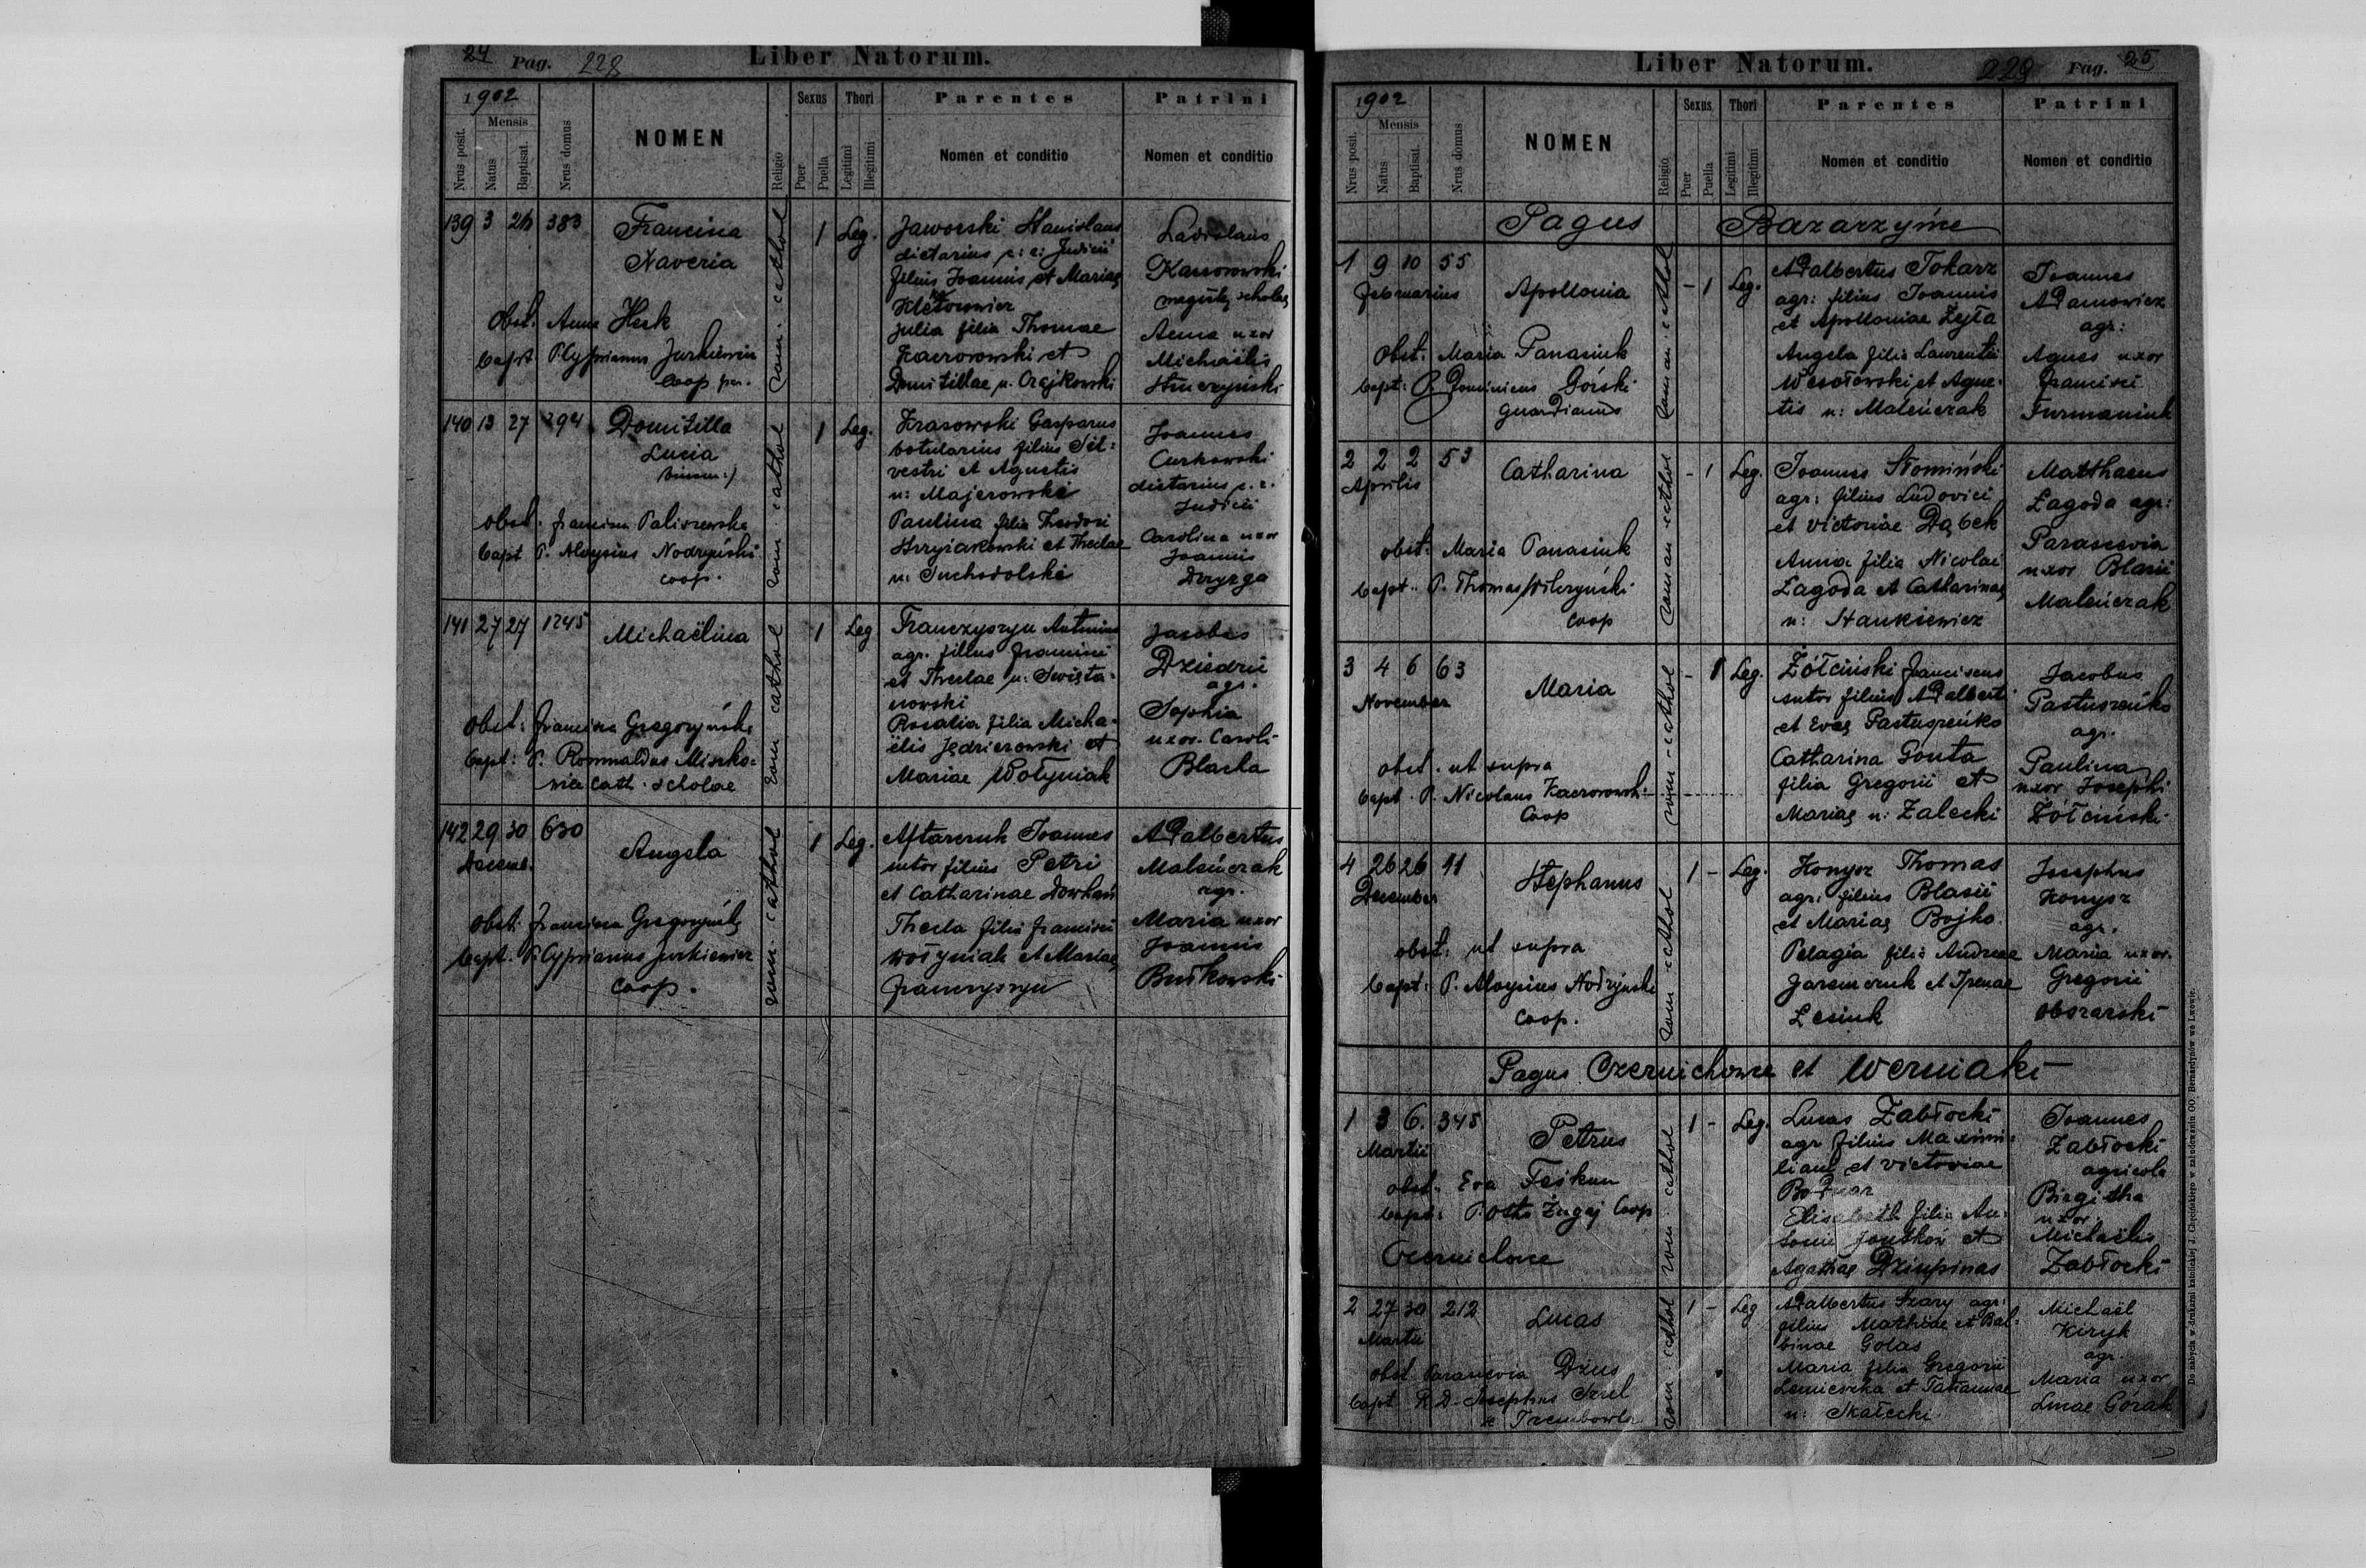 24 Pag. 228 Liber Natorum.
1902
Mensis
Nrus posit.
Natus
Baptisat.
Nrus domus
NOMEN
Religio
Sexus
Puer
Puella
Thori
Legitimi
Illegitimi
Parentes
Nomen et conditio
Patrini
Nomen et conditio
139 3 26 383
Francisca
Xaveria
Obst. Anna Hesk
bapt P. Cyprianus Jurkiewicz
Coop per.
rom. cathol
1 Leg.
Jaworski Stanislaus
dietarius c: r: Judicii
filius Joannis et Mariae
Julia filia Thomae
Kaczorowski et
Domitillae n. Czajkowski
Ladislaus
magistr scholae
Anna uxor
Michaëlis
Struczyński
140 13 27 294
Domitilla
Lucia
binom:)
obst. Francisca Paliszewska
bapt P. Aloysius Nodzyński
coop.
rom. cathol
1 Leg.
Krasowski Gasparus
botularius filius Sil-
vestri et Agnetis
n: Majerowski
Paulina filia Theodori
Strzyżakowski et Theclae
n: Suchodolski
Joannes
Curkowski
dietarius c. r.
Judicii
Carolina uxor
Joannis
Dryzga
141 27 27 1245
Michaëlina
Obst: Francisca Gregoryńska
bapt: P. Romualdus Miszko-
wicz cath. scholae
rom cathol
1 Leg
Franczyszyn Antonius
agr. filius Francisci
et Theclae n: Święta-
nowski
Rosalia filia Micha-
ëlis Jędrzejowski et
Mariae Wołyniak
Jacobus
Dziedzic
agr.
Sophia
uxor Caroli
Blacha
142 29 30 630
Decemb.
Angela
obst. Francisca Gregoryńska
bapt. P. Cyprianus Jurkiewicz
Coop.
rom. cathol
1 Leg.
Aftarczuk Joannes
sutor filius Petri
et Catharinae Dowhań
Thecla filia Francisci
Wołyniak et Mariae
Franczyszyn
Adalbertus
Maleńczak
agr.
Maria uxor
Joannis
Bułkowski
Liber Natorum. 229 Pag. 25
1902
Mensis
Nrus posit.
Natus
Baptisat.
Nrus domus
NOMEN
Religio
Sexus
Puer
Puella
Thori
Legitimi
Illegitimi
Parentes
Nomen et conditio
Patrini
Nomen et conditio
Pagus Bazarzyńce
1 9 10 55
Februarius
Apollonia
Obst. Maria Panasiuk
bapt: P. Dominicus Górski
guardianus
roman. cathol
- 1 Leg.
Adalbertus Tokarz
agr: filius Joannis
et Apolloniae Żejła
Angela filia Laurentii
Wesołowski et Agne-
tis n: Maleńczak
Joannes
Adamowicz
agr:
Agnes uxor
Francisci
Furmaniuk
2 2 2 53
Aprilis
Catharina
obst: Maria Panasiuk
bapt. P. Thomas Wilczyński
coop
roman cathol
- 1 Leg.
Joannes Słomiński
agr: filius Ludovici
et Victoriae Dąbek
Anna filia Nicolai
Łagoda et Catharinae
n: Hankiewicz
Matthaeus
Łagoda agr:
Parascevia
uxor Blasii
Maleńczak
3 4 6 63
November
Maria
obst. ut supra
bapt. P. Nicolaus Kaczorowski
Coop
rom - cathol
- 1 Leg.
Żółciński Franciscus
sutor filius Adalberti
et Evae Pastuszeńko
Catharina Gonta
filia Gregorii et
Mariae n: Zalecki
Jacobus
Pastuszeńko
agr.
Paulina
uxor Josephi
Żółciński
4 26 26 11
December
Stephanus
obst: ut supra
bapt: P. Aloysius Nodzyński
Coop.
rom cathol
1 - Leg.
Konysz Thomas
agr: filius Blasii
et Mariae Bojko.
Pelagia filia Andreae
Jaremczuk et Irenae
Lesiuk
Josephus
Konysz
agr.
Maria uxor
Gregorii
Obszarski
Pagus Czernichowce et Werniaki
1 3 6. 345
Martii
Petrus
obst. Eva Feśkun
bapt: P. Otto Żugaj Coop
Czernichowce
rom. cathol
1 - Leg.
Lucas Zabłocki
agr filius Maximi-
liani et Victoriae
Bodnar
Elisabeth filia An-
tonii Jontków et
Agathae Dziupinas
Joannes
Zabłocki
agricola
Birgitha
uxor
Michaëlis
Zabłocki
2 27 30 212
Martii
Lucas
obst Parascevia Dżus
bapt R. D. Josephus Szul
e Trembowla
rom. cathol
1 - Leg
Adalbertus Szary agr:
filius Mathiae et Bal-
binae Golas
Maria filia Gregorii
Lemieszka et Tatiannae
n: Skałecki
Michaël
Kiryk
agr.
Maria uxor
Lucae Górak
Do nabycia w drukarni katolickiej J. Chęcińskiego w zabudowaniu OO. Bernardynów we Lwowie.